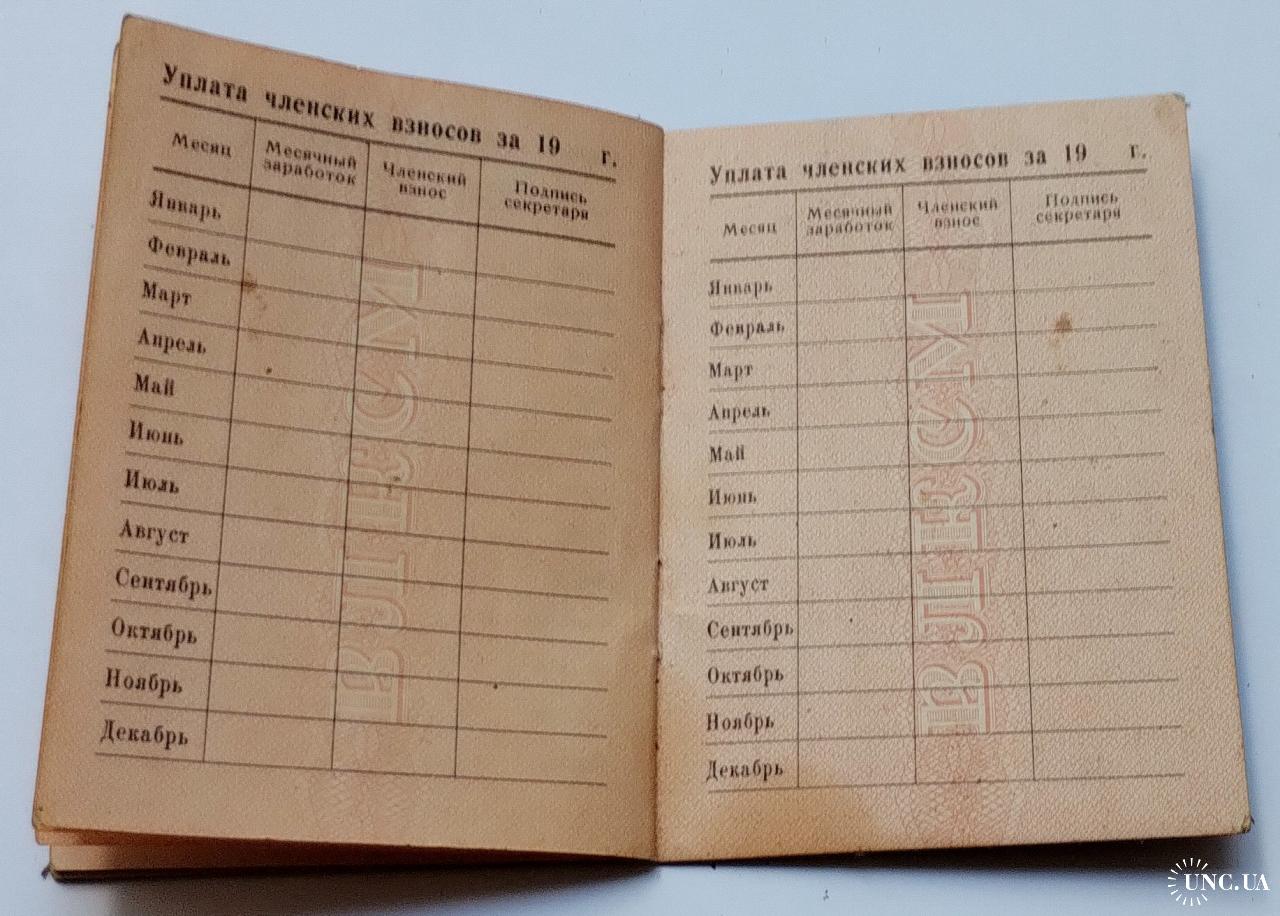 Уплата членских взносов за 19 г.
Месяц Месячный заработок Членский взнос Подпись секретаря
Январь
Февраль
Март
Апрель
Май
Июнь
Июль
Август
Сентябрь
Октябрь
Ноябрь
Декабрь
ВЛКСМ
Уплата членских взносов за 19 г.
Месяц Месячный заработок Членский взнос Подпись секретаря
Январь
Февраль
Март
Апрель
Май
Июнь
Июль
Август
Сентябрь
Октябрь
Ноябрь
Декабрь
ВЛКСМ
UNC.UA